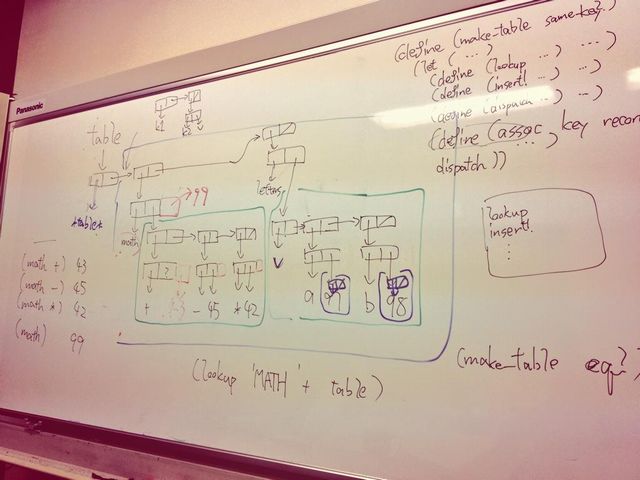 Panasonic
(define (make-table same-key?)
(let ( ... ) ...
(define (lookup ... ) ... )
(define (insert! ... ) ... )
(define (dispatch ... ) ... )
(define (assoc key record
... )
dispatch ))
k1
table
*table*
99
math
letters
+
- 45
* 42
a
b 98
lookup
insert!
⋮
(math +) 43
(math -) 45
(math *) 42
(math) 99
(lookup 'MATH '+ table)
(make-table eq?